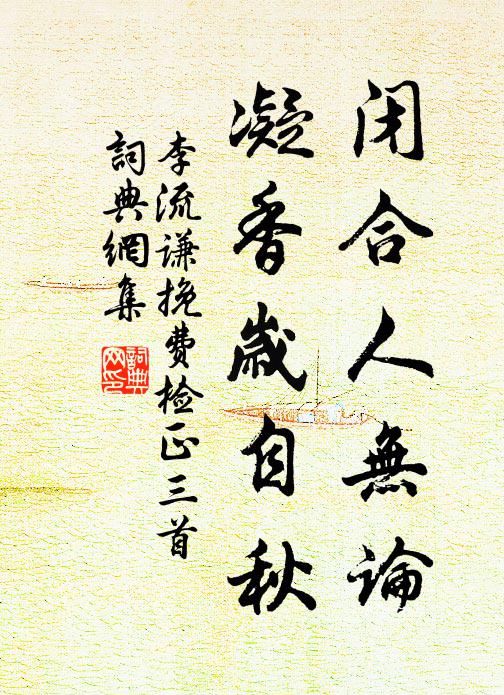 闭合人無論
凝香歲自秋
李流谦挽费检正三首
詞典網集
詞典网印